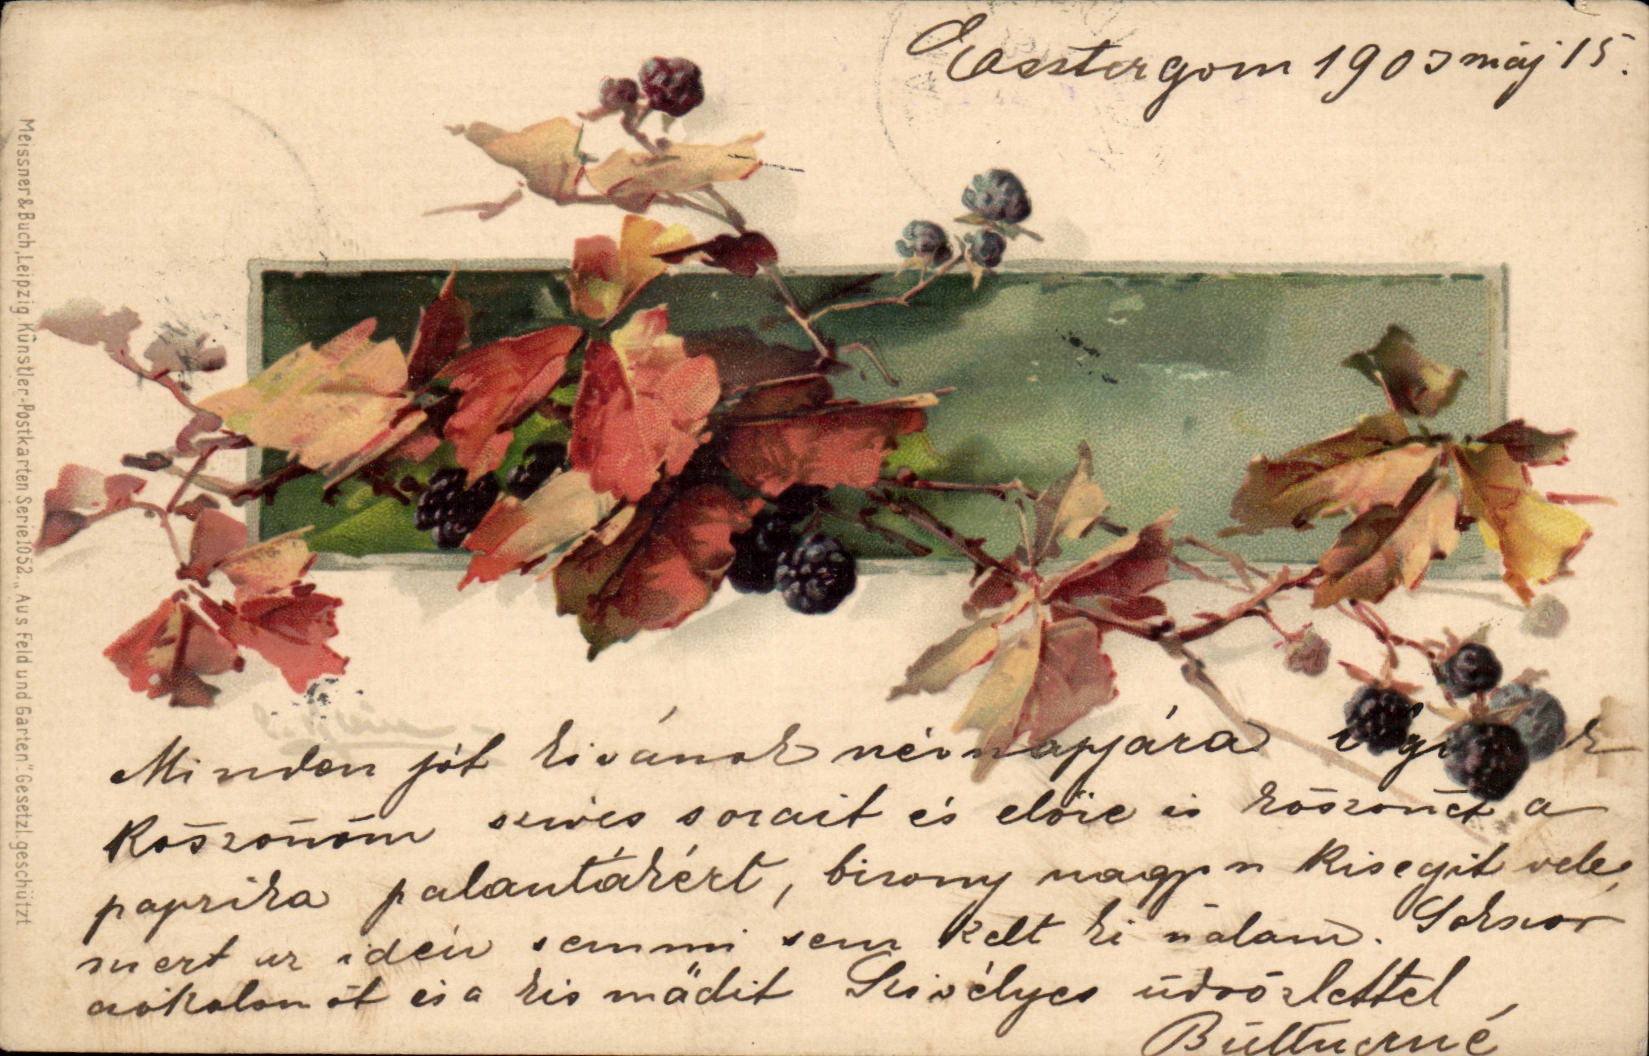 Esztergom 1903 máj 15.
Meissner & Buch, Leipzig Künstler-Postkarten Serie 1052. „Aus Feld und Garten." Gesetzl. geschützt
Minden jót kivánok névnapjára
Köszönöm szives sorait és előre is köszönet a
paprika palantákért, bizony nagyon kisegit vele,
mert az idén semmi sem kelt ki nálam. Sokszor
csókolom öt és a kis mädit Szivélyes üdvözlettel
Büttnerné